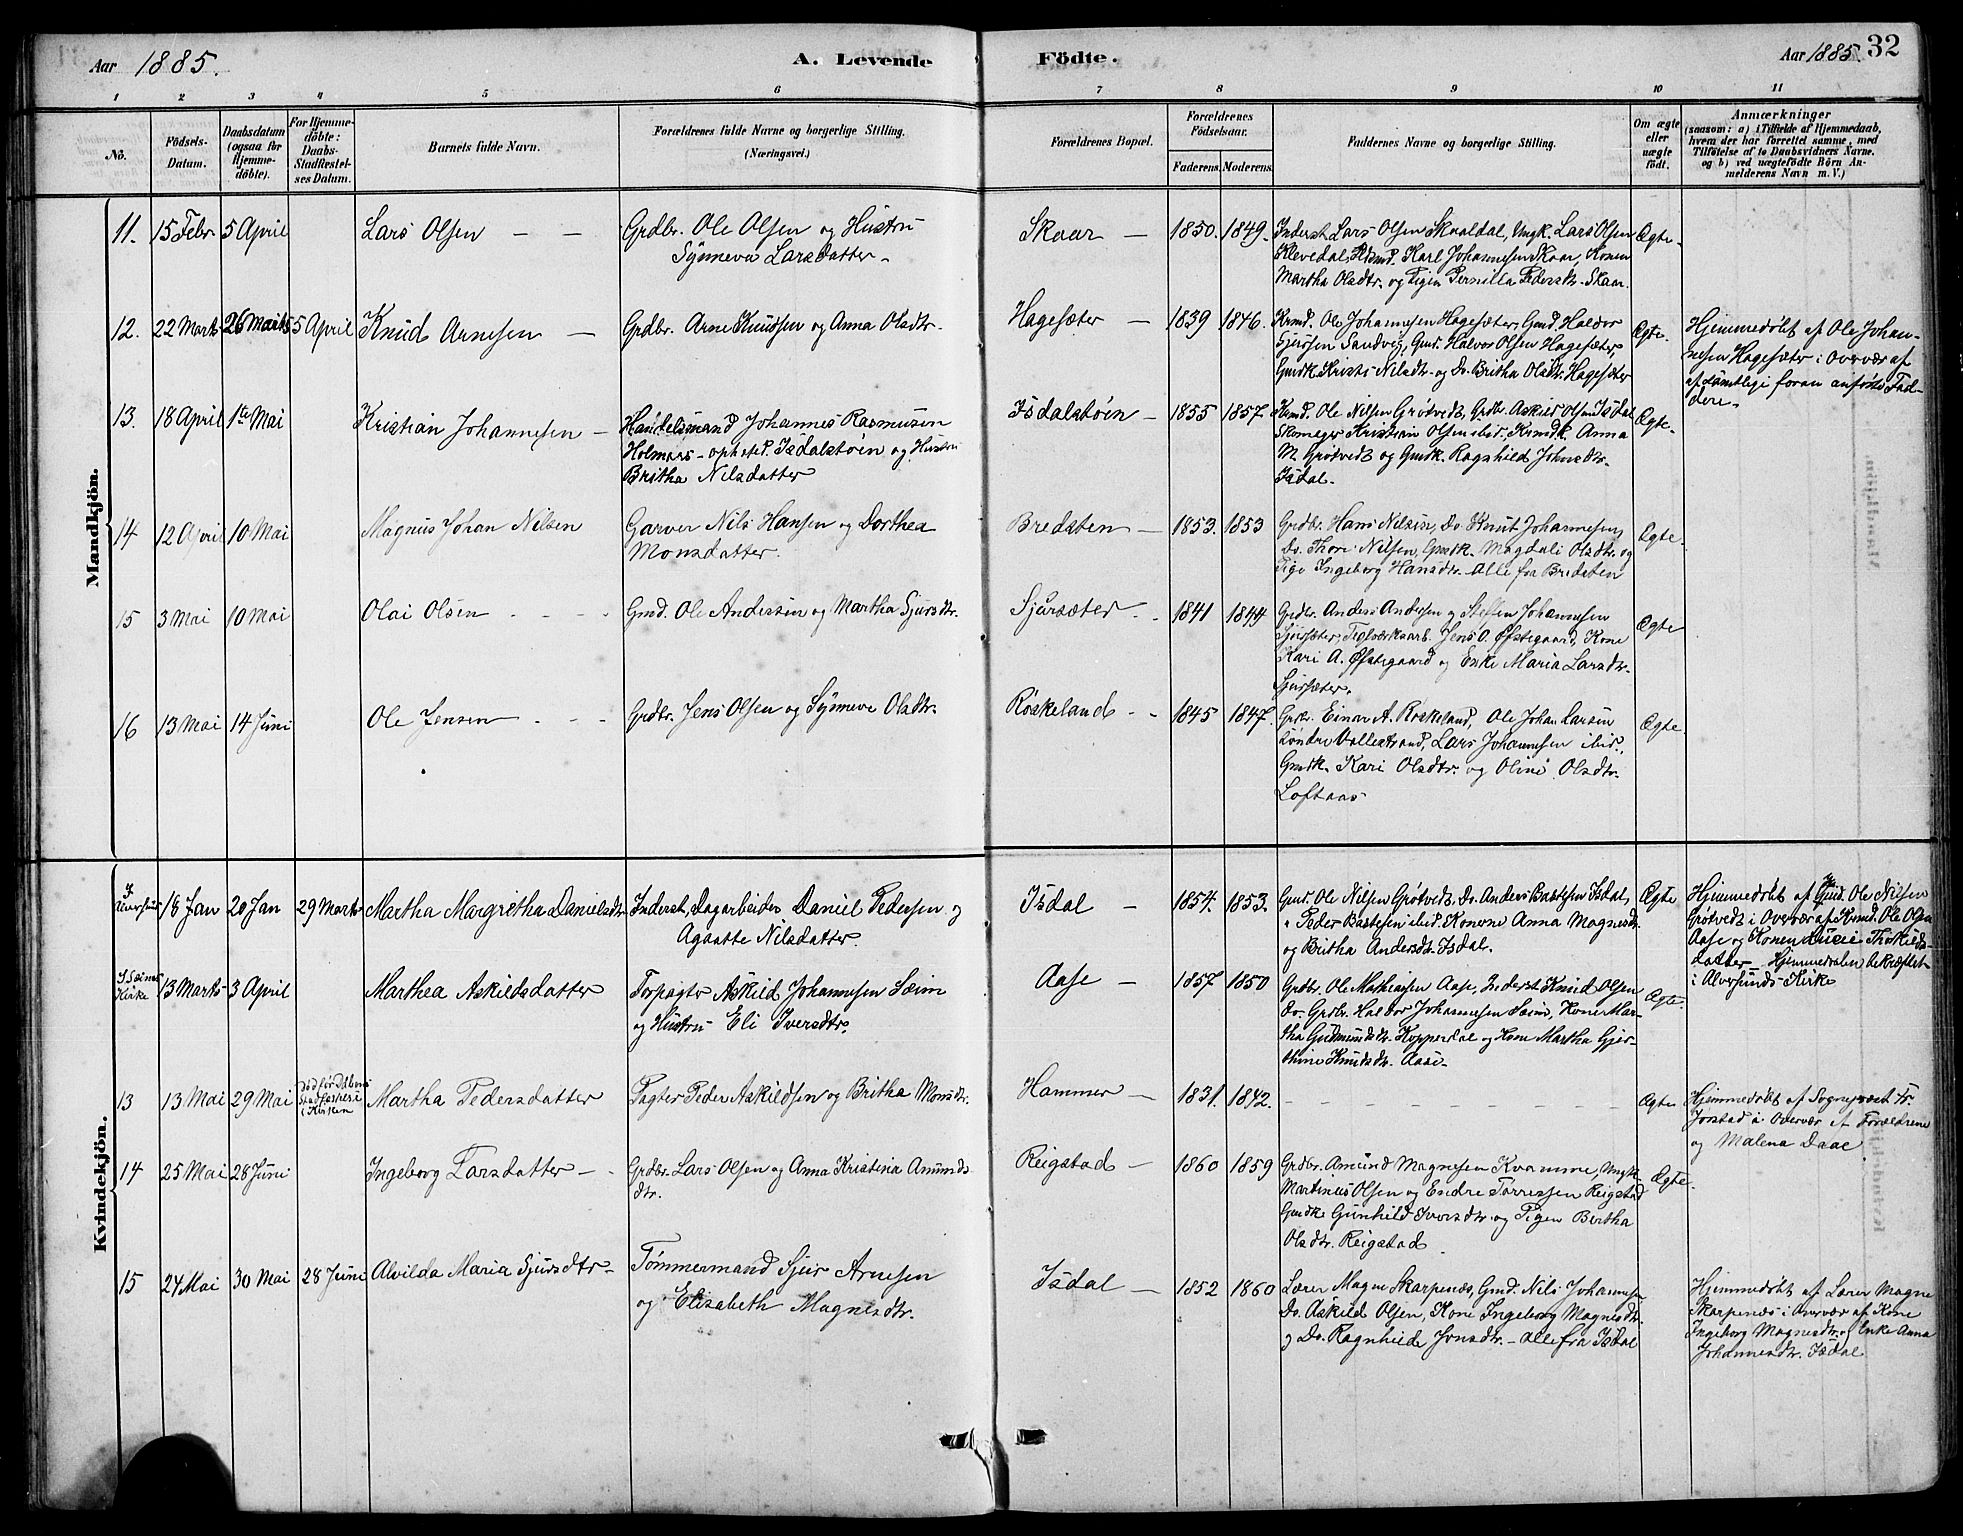 Aar 1885. A. Levende Födte. Aar 1885. 32
1 2 3 4 5 6 7 8 9 10 11
No. Födsels-Datum. Daabsdatum (ogsaa for Hjemme-döbte). For Hjemme-döbte: Daabs-Stadfæstel-ses Datum. Barnets fulde Navn. Forældrenes fulde Navne og borgerlige Stilling. (Næringsvei.) Forældrenes Bopæl. Forældrenes Födselsaar. Faderens. Moderens. Faddernes Navne og borgerlige Stilling. Om ægte eller uægte födt. Anmærkninger (saasom: a) i Tilfælde af Hjemmedaab, hvem der har forrettet samme, med Tilföielse af to Daabsvidners Navne, og b) ved uægtefödte Börn An-melderens Navn m. V.)
Mandkjön.
11. 15 Febr 5 April Lars Olsen — — Grdbr. Ole Olsen og Hustru Skaar — 1850. 1849. Inderst Lars Olsen Skaaldal, Ungk. Lars Olsen Ægte.
Synneva Larsdatter. Klevedal, Karl Johannesen Skaar, Konen
Martha Olsdtr. og Pigen Pernilla Pedersdtr. Skaar.
12. 22 Marts 26 Marts 5 April Knud Arnesen — Grdbr. Arne Knudsen og Anna Olsdtr. Hagesæter — 1839 1846. Kmd. Ole Johannesen Hagesæter, Gmd. Haldor Ægte. Hjemmedöbt af Ole Johan-
Sjursen Sandvig, Gmd. Halvor Olsen Hagesæter, nesen Hagesæter i Overvær af
Gmdk. Kristi Nilsdtr. og Do. Britha Olsdtr. Hagesæter af samtlige foran anförte Fad-
dere.
13. 18 April 1ste Mai Kristian Johannesen — Handelsmand Johannes Rasmusen Isdalstöen — 1855 1857. Kmd. Ole Nilsen Grötvedt, Grdbr. Askild Olsen Isdal Ægte.
Holmaas – ophold. Isdalstöen og Hustru Skomager Kristian Olsen ibid. Kmdk. Anna
Britha Nilsdatter M. Grötvedt og Gmdk. Ragnhild Johnsdtr.
Isdal.
14 12 April 10 Mai Magnus Johan Nilsen Garver Nils Hansen og Dorthea Bredsten — 1853. 1853 Grdbr. Hans Nilsen, Do. Knut Johannesen, Ægte.
Monsdatter. Do. Thore Nilsen, Gmdk. Magdali Olsdtr. og
Pige Ingeborg Hansdtr. Alle fra Bredsten
15 3 Mai 10 Mai Olai Olsen Gmd. Ole Andersen og Martha Sjursdtr. Sjursæter 1841 1844 Grdbr. Anders Andersen og Steffen Johannesen Ægte
Sjursæter, Teglverksarb. Jens O. Öfstegaard, Kone
Kari A. Öfstegaard og Enke Maria Larsdtr.
Sjursæter.
16 13 Mai 14 Juni Ole Jensen Grdbr. Jens Olsen og Synneve Olsdtr. Röskeland 1845 1847. Grdbr. Einar A. Röskeland, Ole Johan Larsen Ægte.
Söndre Vallestrand, Lars Johannesen ibid.,
Gmdk. Kari Olsdtr. og Oline Olsdtr.
Loftaas
Kvindekjön.
I Alversund 18 Jan 20 Jan 29 Marts Martha Margretha Danielsdtr Inderst, Dagarbeider Daniel Pedersen og Isdal — 1854. 1853. Gmd. Ole Nilsen Grötvedt, Do. Anders Bastesen Isdal, Ægte Hjemmedöbt af Gmd. Ole Nilsen
Agaatte Nilsdatter. Peder Bastesen ibid. Konerne Anna Magnesdtr. Grötvedt i Overvær af Kmd. Ole Olsen
og Britha Andersdtr. Isdal. Aase og Konen Thorkilds-
datter — Hjemmedaaben bekræftet
i Alversunds Kirke
I Seims Kirke 13 Marts 3 April Marthea Askildsdatter Forpagter Askild Johannesen Seim Aase — 1857 1850 Grdbr. Ole Mathiassen Aase, Inderst Knud Olsen Ægte.
og Hustru Eli Iversdtr. Do. Grdbr. Haldor Johannesen Seim, Kone Mar-
tha Gudmundsdtr. Kopperdal og Kone Martha Gjer-
thine Knudsdtr. Aase.
13 13 Mai 29 Mai Död för Daabens Stadfæstelse i Kirken Martha Pedersdatter Pagter Peder Askildsen og Britha Monsdtr. Hammer — 1831. 1842. — — — — Ægte Hjemmedöbt af Sognepræst Fr.
Jorstad i Overvær af Forældrene
og Malena Daae.
14 25 Mai 28 Juni Ingeborg Larsdatter — Grdbr. Lars Olsen og Anna Kristina Amunds Reigstad — 1860 1859 Grdbr. Amund Magnesen Kvamme, Ungk. Ægte.
dtr. Martinus Olsen og Endre Torressen Reigstad
Gmdk. Gunhild Iversdtr. og Pigen Bertha
Olsdtr. Reigstad.
15 24 Mai 30 Mai 28 Juni Alvilda Maria Sjursdtr — Tömmermand Sjur Arnesen Isdal — 1852 1860 Lærer Magne Skarpenæs, Gmd. Nils Johannesen Hjemmedöbt af Lærer Magne
og Elisabeth Magnesdtr. Do. Askild Olsen, Kone Ingeborg Magnesdtr. Skarpenæs i Overvær af Kone
og Do. Ragnhilde Jonsdtr. – alle fra Isdal Ingeborg Magnesdtr. og Enke Anna
Johannesdtr. Isdal